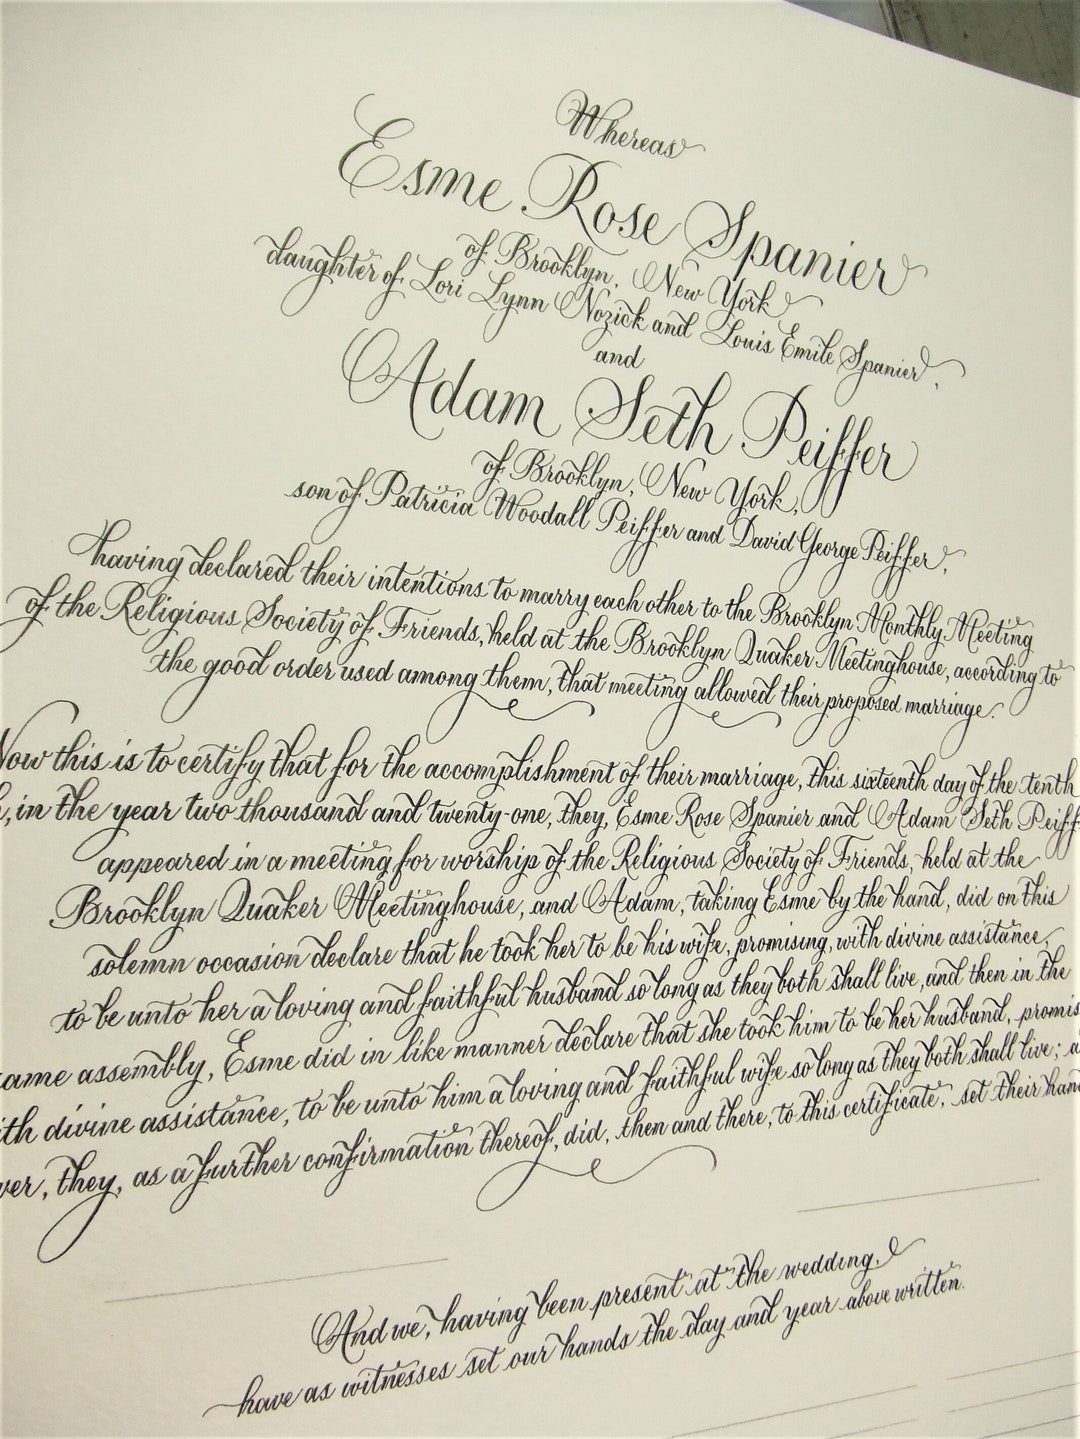 Whereas
Esme Rose Spanier
of Brooklyn, New York
daughter of Lori Lynn Nozick and Louis Emile Spanier,
and
Adam Seth Peiffer
of Brooklyn, New York,
son of Patricia Woodall Peiffer and David George Peiffer,
having declared their intentions to marry each other to the Brooklyn Monthly Meeting
of the Religious Society of Friends, held at the Brooklyn Quaker Meetinghouse, according to
the good order used among them, that meeting allowed their proposed marriage.
Now this is to certify that for the accomplishment of their marriage, this sixteenth day of the tenth
, in the year two thousand and twenty-one, they, Esme Rose Spanier and Adam Seth Peiff
appeared in a meeting for worship of the Religious Society of Friends, held at the
Brooklyn Quaker Meetinghouse, and Adam, taking Esme by the hand, did on this
solemn occasion declare that he took her to be his wife, promising, with divine assistance,
to be unto her a loving and faithful husband so long as they both shall live, and then in the
ame assembly, Esme did in like manner declare that she took him to be her husband, promis
ith divine assistance, to be unto him a loving and faithful wife so long as they both shall live; a
ver, they, as a further confirmation thereof, did, then and there, to this certificate, set their han
And we, having been present at the wedding,
have as witnesses set our hands the day and year above written.